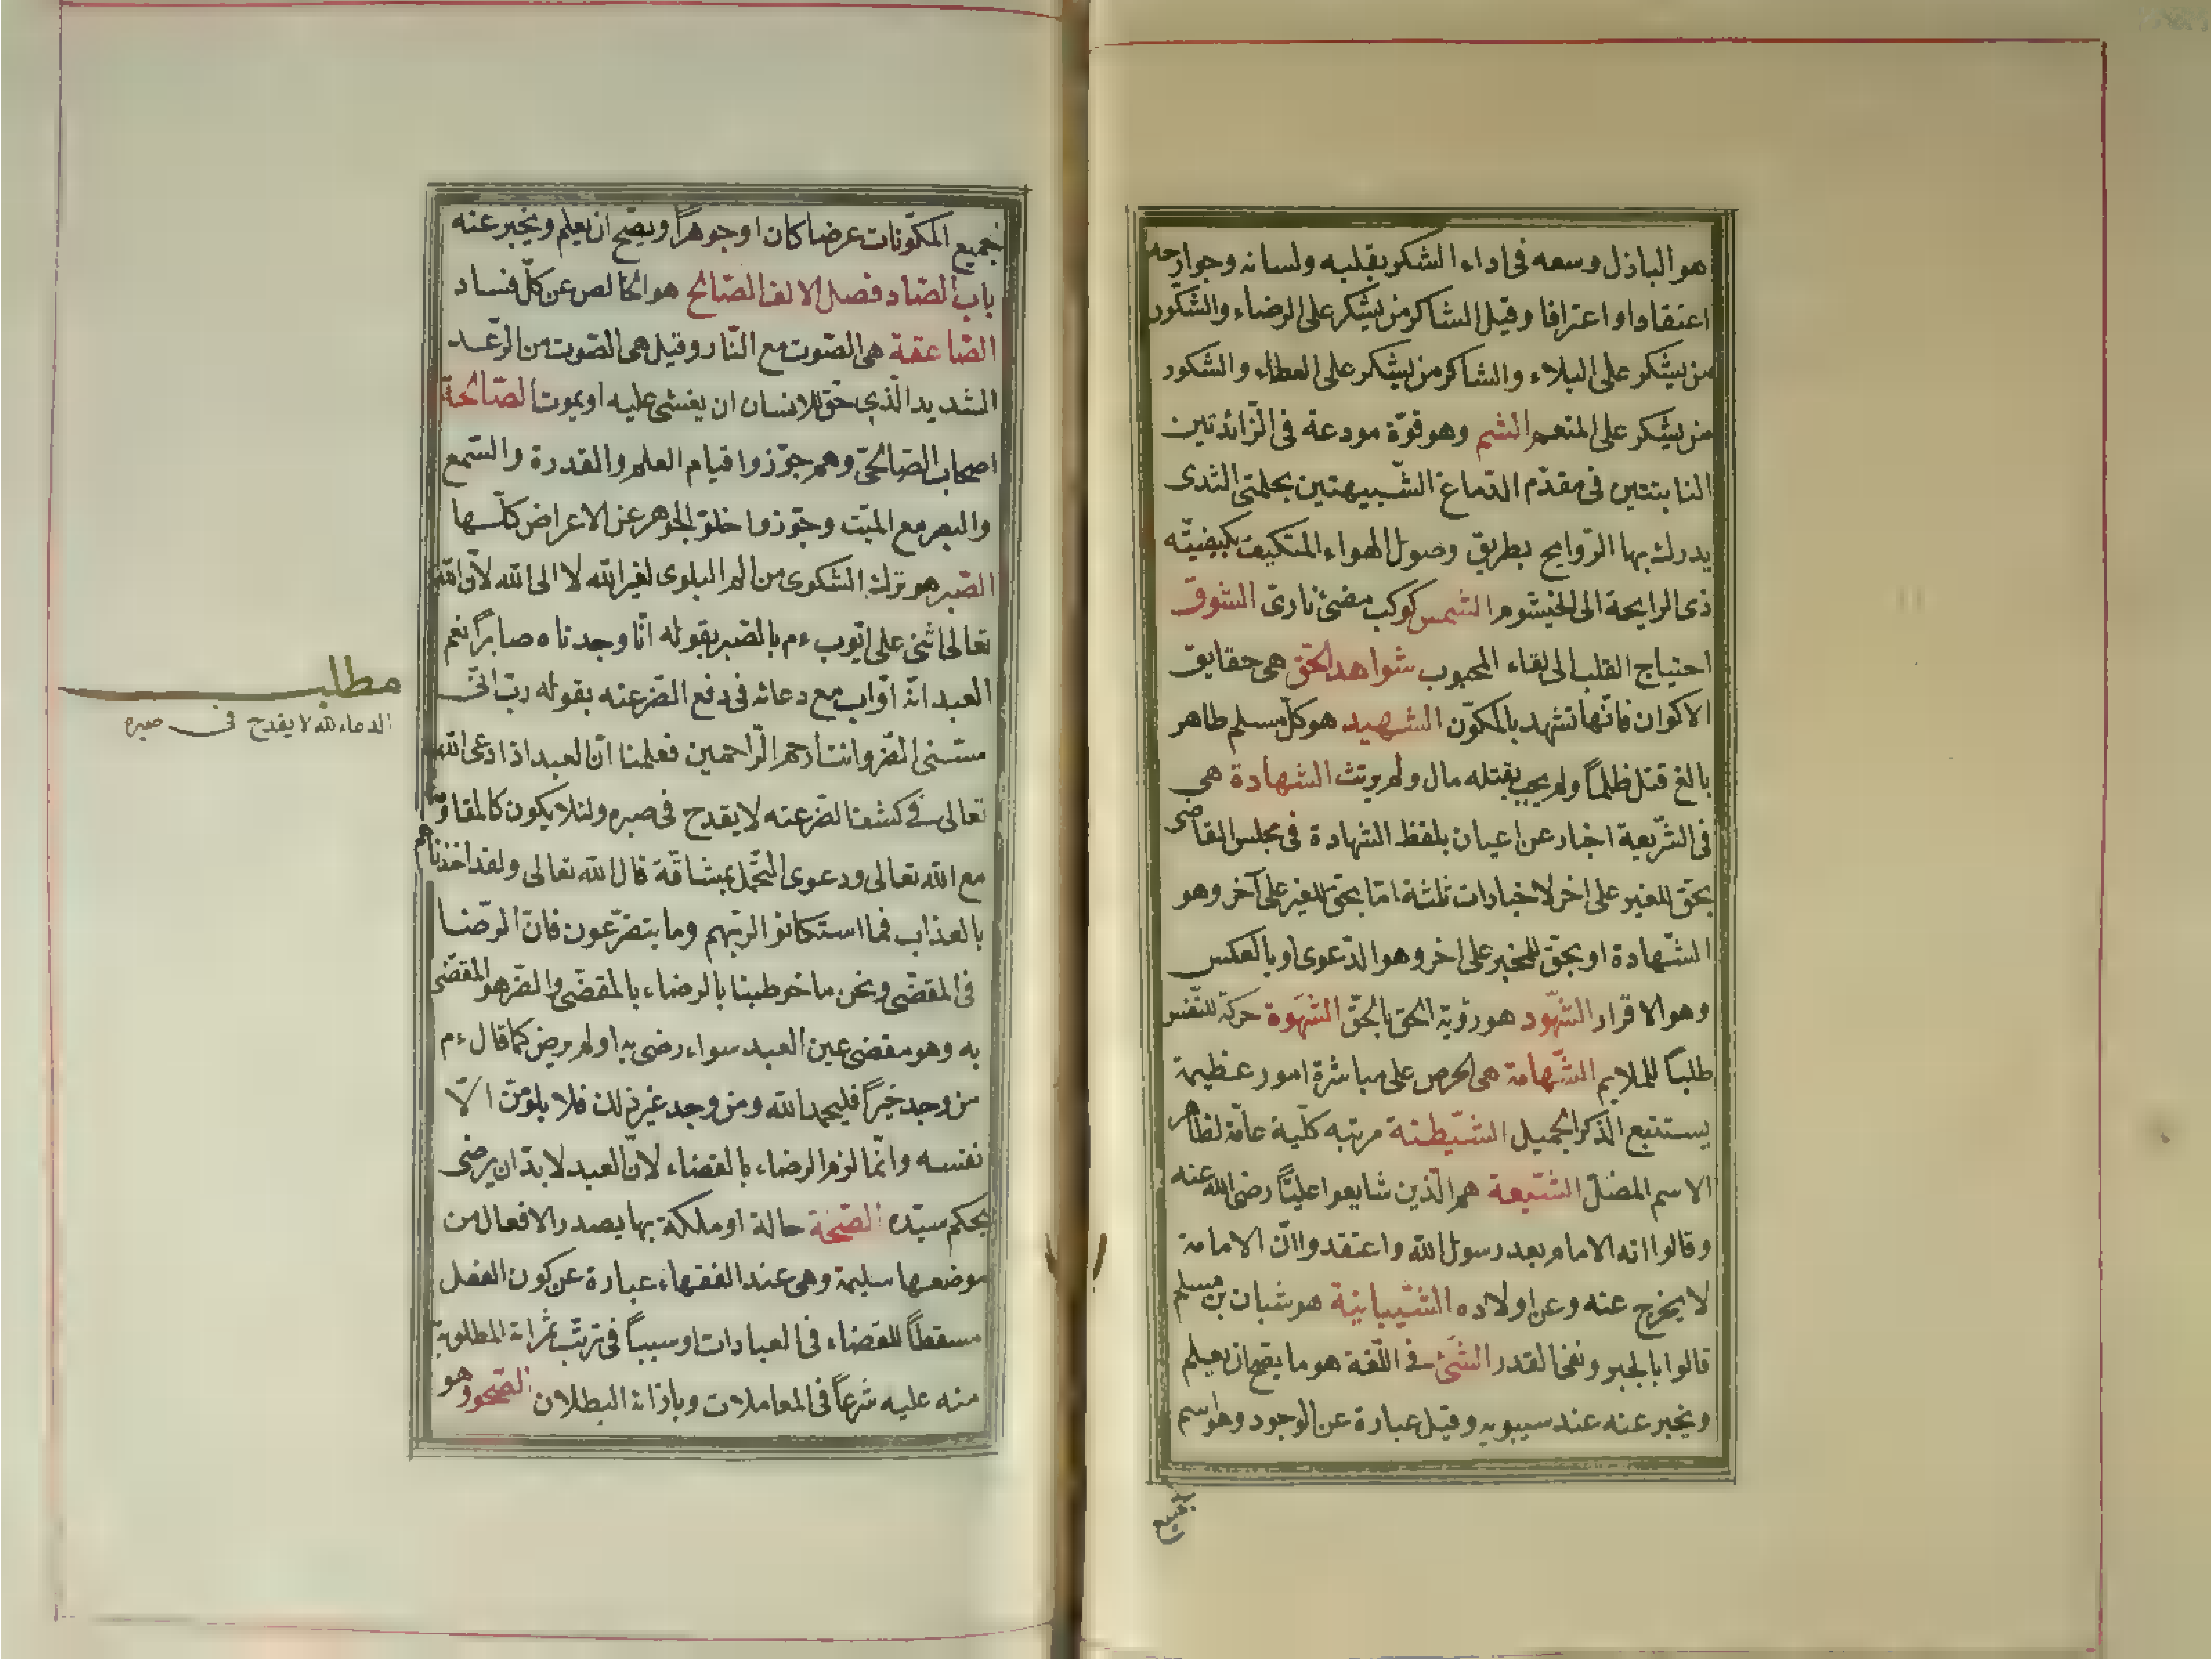 هو الباذل وسعه فى اداء الشكر بقلبه ولسانه وجوارحه
اعتقادا واعترافا وقيل الشاكر من يشكر على الرضاء والشكور
من يشكر على البلاء والشاكر من يشكر على العطاء والشكور
من يشكر على المنعم الشم وهو قوّة مودعة فى الزّائدتين
النابتتين فى مقدّم الدّماغ الشّبيهتين بحلمتى الثدى
يدرك بها الرّوايح بطريق وصول الهواء المتكيف بكيفيّته
ذى الرايحة الى الخيشوم الشمس كوكب مضئ نارىّ الشوق
احتياج القلب الى لقاء المحبوب شواهد الحّق هى حقايق
الاكوان فانّها تشهد بالمكوّن الشهيد هو كلّ مسلم طاهر
بالغ قتل ظلماً ولم يجب بقتله مال ولم يرتث الشهادة هى
فى الشّريعة اخبار عن اعيان بلفظ الشهادة فى مجلس القاضى
بحّق للغير على اخر لاخبارات ثلثة امّا بحق للغير على آخر وهو
الشّهادة او بحّق للمخبر على اخر وهو الدّعوى او بالعكس
وهو الاقرار الشّهود هو رؤية الحق بالحّق الشّهوة حركة للنّفس
طلباً للملايم الشّهامة هى الحرص على مباشرة امور عظيمة
يستتبع الذّكر الجميل الشّيطنة مرتبه كلّية عامّة لمظاهر
الاسم المضلّ الشّيعة هم الّذين شايعوا عليّاً رضى الله عنه
وقالوا انه الامام بعد رسول الله واعتقدوا انّ الامامة
لا يخرج عنه وعن اولاده الشّيبانية هو شبان بن مسلم
قالوا بالجبر ونفى القدر الشّئ فى اللّغة هو ما يصح ان يعلم
ويخبر عنه عند سيبويه وقيل عبارة عن الوجود وهو اسم
جميع
جميع المكوّنات عرضا كان او جوهراً ويصّح ان يعلم ويخبر عنه
باب الصّاد فصل الالف الصّالح هو الخالص عن كلّ فساد
الصّاعقة هى الصّوت مع النّار وقيل هى الصّوت من الرّعد
الشديد الّذى حّق للانسان ان يغشى عليه او يموت الصّالحّة
اصحاب الصّالحّى وهم جوّزوا قيام العلم والقدرة والسّمع
والبصر مع الميّت وجوّزوا خلوّ الجوهر عن الاعراض كلّها
الصّبر هو ترك الشكوى من الم البلوى لغير الله لا الى الله لانّ الله
تعالى اثنى على ايّوب ءم بالصّبر بقوله انّا وجدناه صابراً نعم
العبد انّه اوّاب مع دعائه فى دفع الضّر عنه بقوله ربّ انّى
مسّنى الضّر وانت ارحم الّراحمين فعلمنا انّ العبد اذا دعى الله
تعالى فى كشف الضّر عنه لا يقدح فى صبره ولئلا يكون كالمقاومة
مع الله تعالى ودعوى التّحمّل بمشاقّة قال الله تعالى ولقد اخذناهم
بالعذاب فما استكانوا لربّهم وما يتضرّعون فانّ الرّضا
فى المقضّى ونحن ما خوطبنا بالرضاء بالمقضّى والضّر هو المقضّى
به وهو مقضى عين العبد سواء رضى به او لم يرض كما قال ءم
من وجد خيراً فليحمد الله ومن وجد غير ذلك فلا يلومّن الّا
نفسه وانّما لزم الرضاء بالقضاء لانّ العبد لا بدّ ان يرضى
بحكم سيّده الصّحّة حالة او ملكة بها يصدر الافعال من
موضعها سليمة وهى عند الفقهاء عبارة عن كون الفعل
مسقطاً للقضاء فى العبادات او سبباً فى ترتّب ثمراته المطلوبة
منه عليه شرعاً فى المعاملات وبازائه البطلان الصّحو وهو
مطلب
الدعاء لله لا يقدح فى صبره